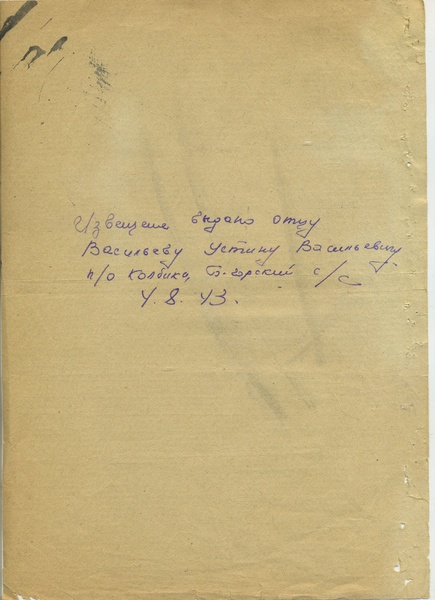 Извещение выдано отцу
Васильеву Устину Васильевичу
п/о Колбика, Б-горский с/с
4. 8. 43.